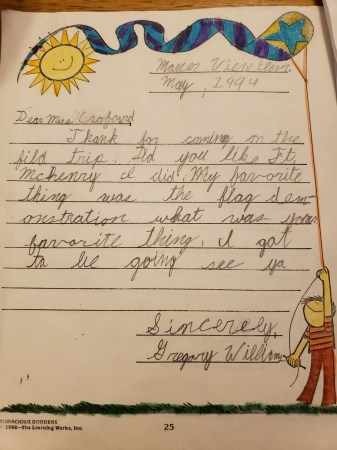 Manor View Elem.
May, 1994
Dear Miss Crofowrd
Thank for coming on the
fild trip. Did you like Ft.
McHenry I did. My favorite
thing was the flag dem-
onstration what was your
favorite thing. I got
to be going see ya
Sincerely,
Gregory William
BODACIOUS BORDERS
© 1988—The Learning Works, Inc.
25